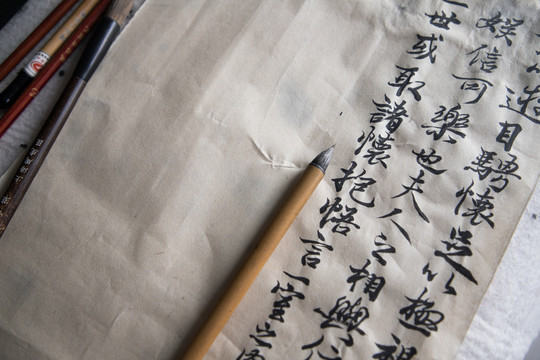 遊目騁懷足以極視
娛信可樂也夫人之相與
世或取諸懷抱悟言一室之